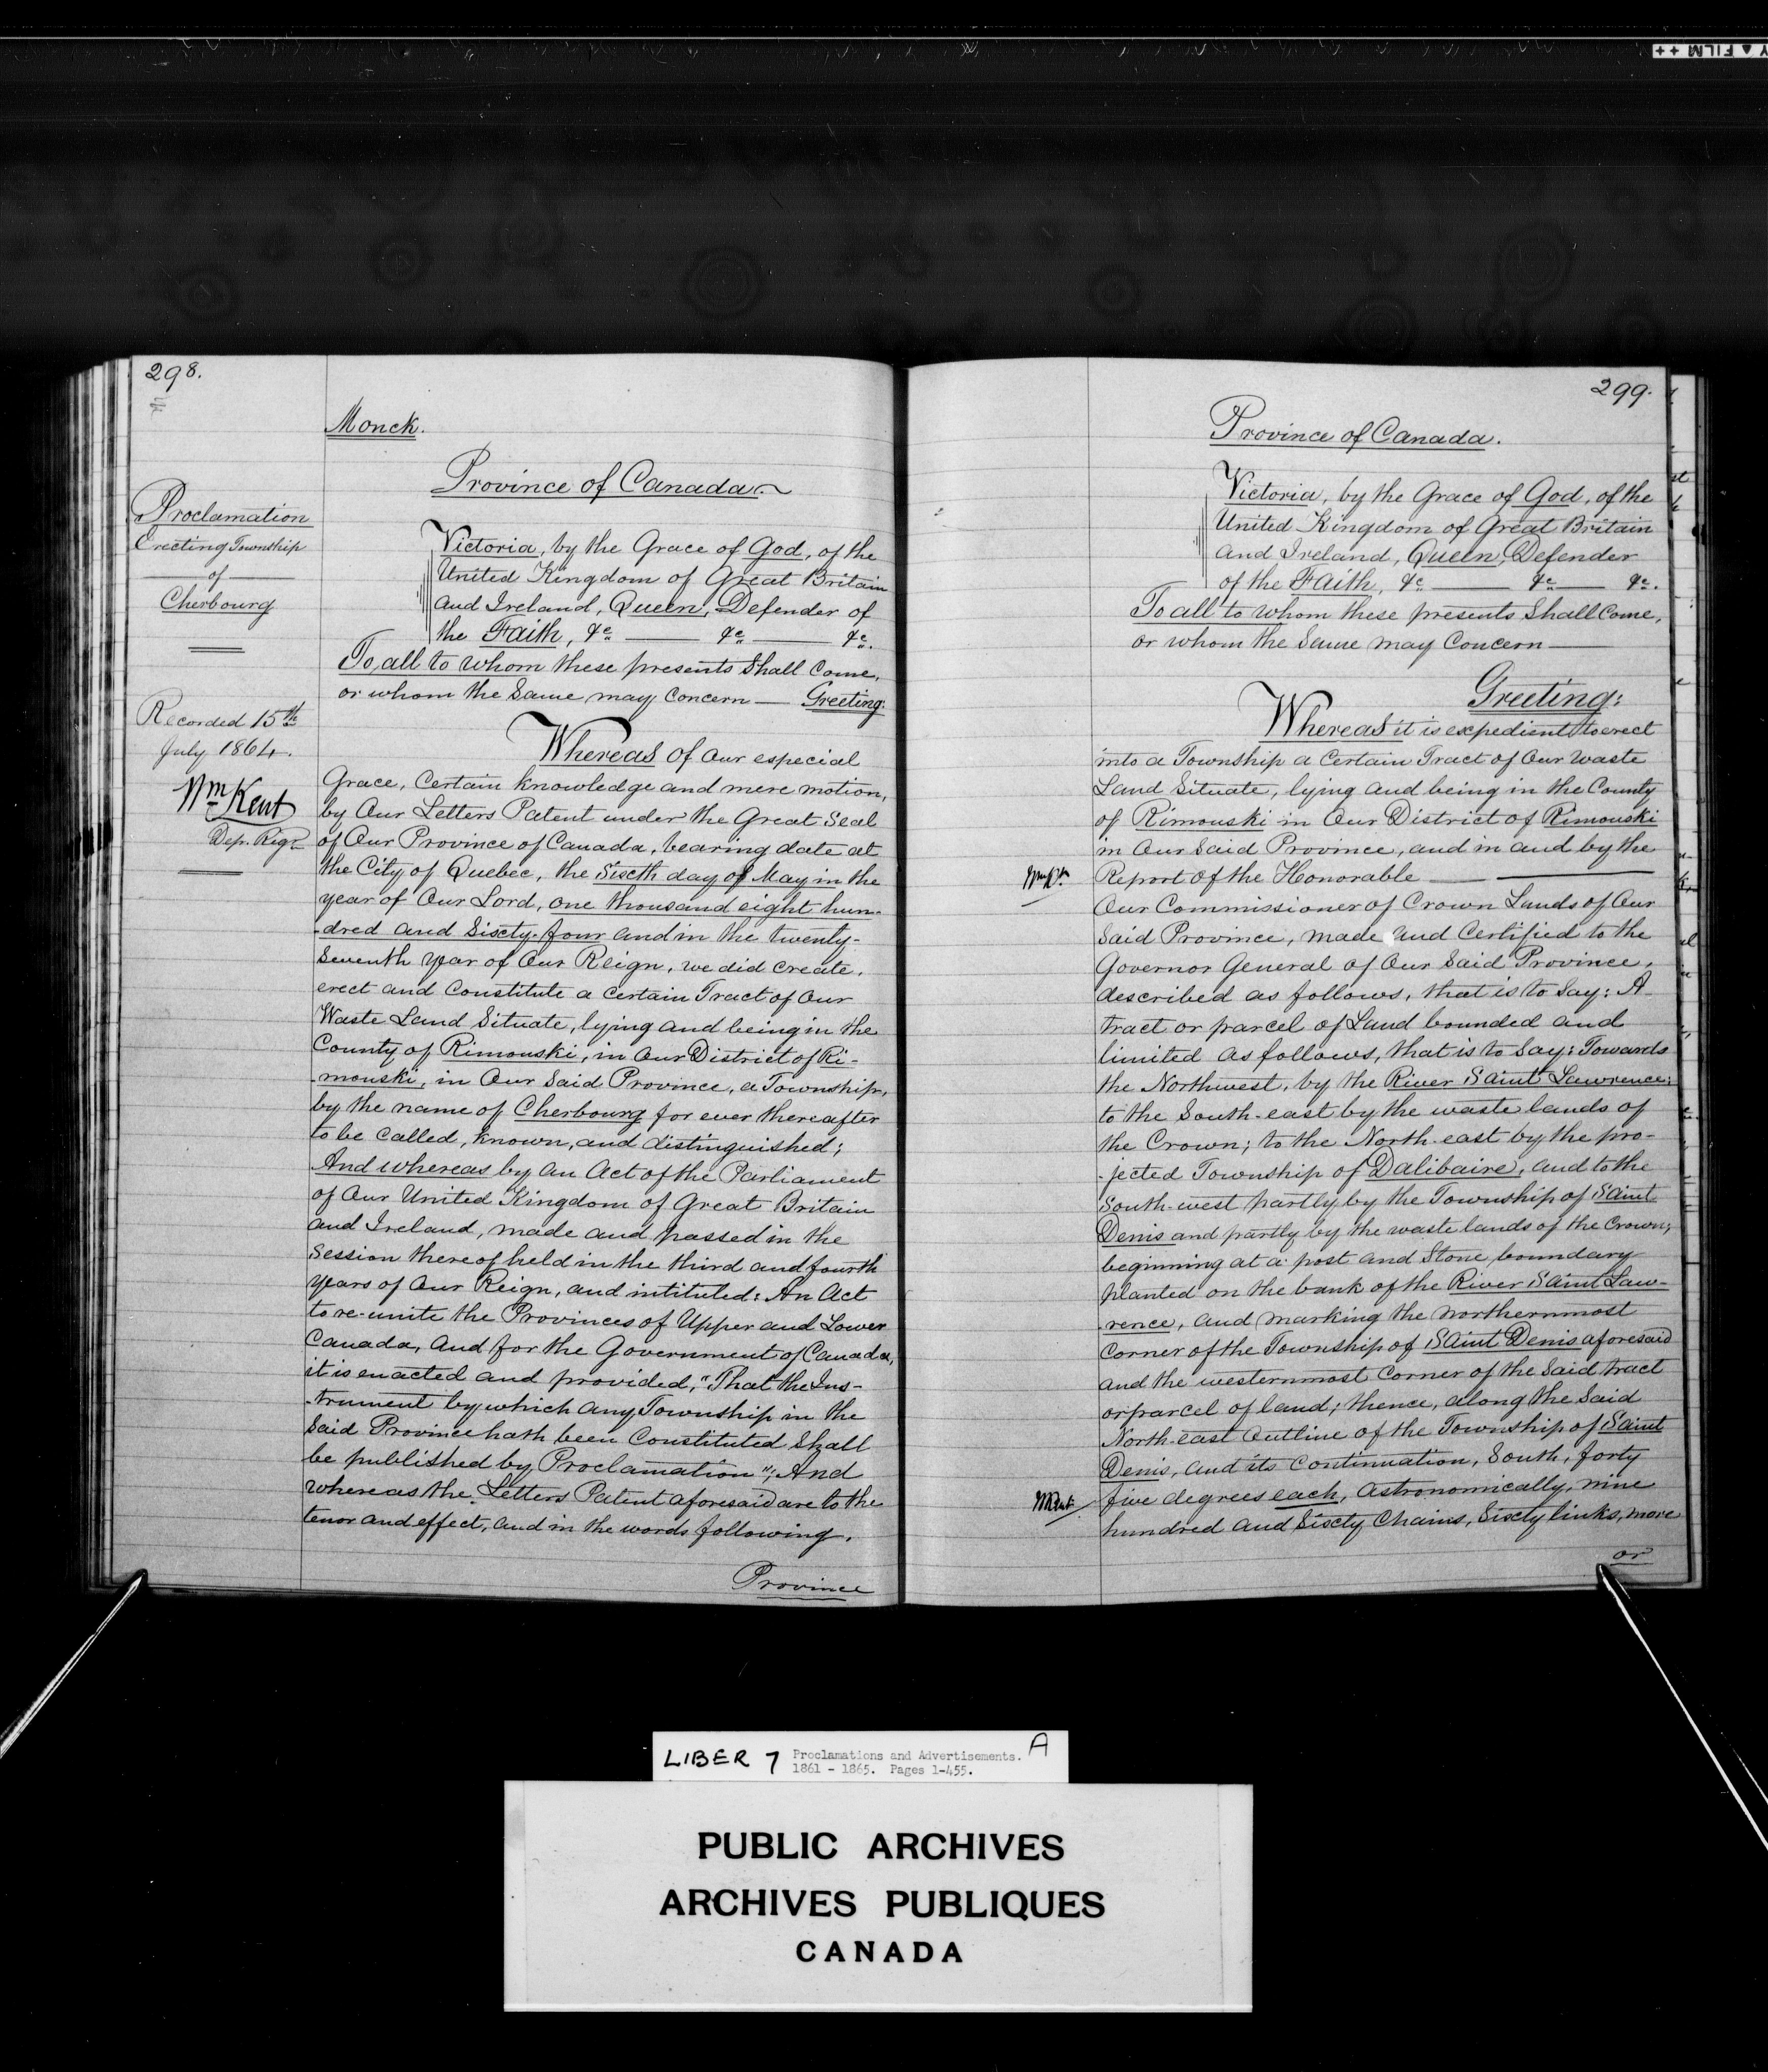 298.
Monck.
Province of Canada.
Proclamation
Erecting Township
of
Cherbourg
Recorded 15th
July 1864.
Wm Kent
Dep. Regr
Victoria, by the Grace of God, of the
United Kingdom of Great Britain
and Ireland, Queen, Defender of
the Faith, &c &c &c.
To all to whom these presents shall come,
or whom the same may concern — Greeting:
Whereas of our especial
Grace, Certain knowledge and mere motion,
by Our Letters Patent under the Great Seal
of Our Province of Canada, bearing date at
the City of Quebec, the Sixth day of May in the
year of Our Lord, one thousand eight hun-
-dred and Sixty-four and in the twenty-
seventh year of Our Reign, we did create,
erect and Constitute a certain Tract of Our
Waste Land Situate, lying and being in the
County of Rimouski, in Our District of Ri-
-mouski, in Our said Province, a Township,
by the name of Cherbourg for ever thereafter
to be called, known, and distinguished;
And whereas by an Act of the Parliament
of Our United Kingdom of Great Britain
and Ireland, made and passed in the
Session thereof held in the third and fourth
years of Our Reign, and intituled: An Act
to re-unite the Provinces of Upper and Lower
Canada, and for the Government of Canada,
it is enacted and provided, "That the Ins-
-trument by which any Township in the
said Province hath been Constituted Shall
be published by Proclamation"; And
whereas the Letters Patent aforesaid are to the
tenor and effect, and in the words following.
Province
299.
Province of Canada.
Victoria, by the Grace of God, of the
United Kingdom of Great Britain
and Ireland, Queen, Defender
of the Faith, &c &c &c.
To all to whom these presents Shall Come,
or whom the Same may Concern —
Greeting:
Whereas it is expedient to erect
into a Township a Certain Tract of Our Waste
Land Situate, lying and being in the County
of Rimouski in Our District of Rimouski
in Our Said Province, and in and by the
Report of the Honorable —
Our Commissioner of Crown Lands of Our
Said Province, made and Certified to the
Governor General of Our Said Province,
described as follows, that is to Say: A
tract or parcel of Land bounded and
limited as follows, that is to Say: Towards
the Northwest, by the River Saint Lawrence;
to the South-east by the waste lands of
the Crown; to the North-east by the pro-
-jected Township of Dalibaire, and to the
South-west partly by the Township of Saint
Denis and partly by the waste lands of the Crown;
beginning at a post and Stone boundary
planted on the bank of the River Saint Law-
-rence, and marking the northernmost
Corner of the Township of Saint Denis aforesaid
and the westernmost Corner of the Said tract
or parcel of land; thence, along the Said
North-east Outline of the Township of Saint
Denis, and its Continuation, South, forty
five degrees each, Astronomically, nine
hundred and Sixty Chains, Sixty links, more
or
LIBER 7 Proclamations and Advertisements. A
1861 - 1865. Pages 1-455.
PUBLIC ARCHIVES
ARCHIVES PUBLIQUES
CANADA